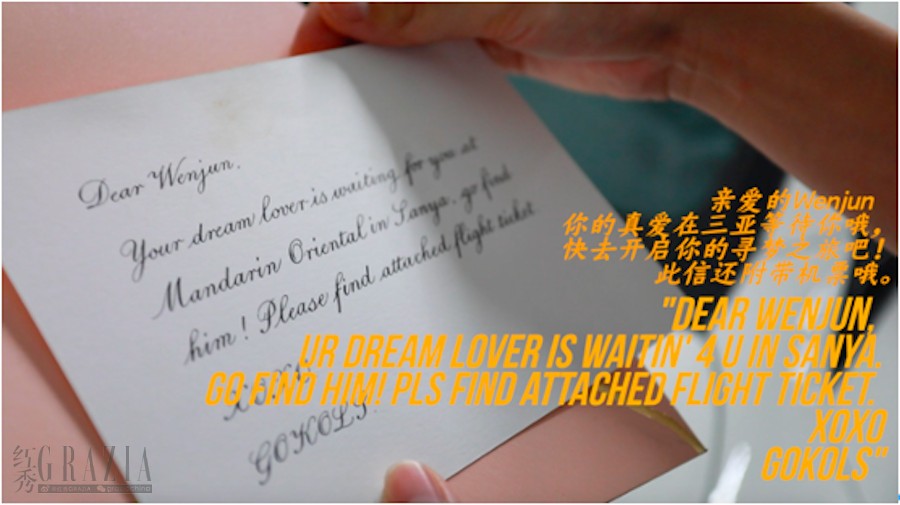 Dear Wenjun.
Your dream lover is waiting for you at
Mandarin Oriental in Sanya. go find
him! Please find attached flight ticket.
XOXO
GOKOLS.
亲爱的Wenjun
你的真爱在三亚等待你哦，
快去开启你的寻梦之旅吧！
此信还附带机票哦。
"DEAR WENJUN,
UR DREAM LOVER IS WAITIN' 4 U IN SANYA.
GO FIND HIM! PLS FIND ATTACHED FLIGHT TICKET.
XOXO
GOKOLS"
红秀GRAZIA